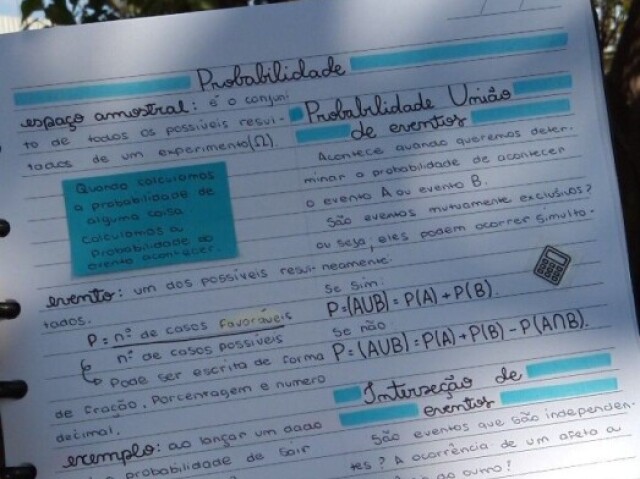 Probabilidade
espaço amostral: é o conjun
to de todos os possíveis resul-
tados de um experimento(Ω)
Quando calculamos
a probabilidade de
alguma coisa
calculamos a
probabilidade do
evento acontecer.
evento: um dos possíveis resul-
tados.
P = nº de casos favoráveis
nº de casos possíveis
Pode ser escrita de forma
de fração, porcentagem e numero
decimal.
exemplo: ao lançar um dado
probabilidade de sair
Probabilidade União
de eventos
Acontece quando queremos deter.
minar a probabilidade de acontecer
o evento A ou evento B.
São eventos mutuamente exclusivos?
ou seja, eles podem ocorrer simulta-
neamente:
Se sim:
P=(AUB) = P(A) + P(B)
Se não:
P=(AUB) = P(A) + P(B) - P(A∩B).
Interseção de
eventos
São eventos que são independen-
tes? A ocorrência de um afeta a
ao outro?